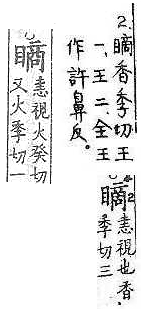 2. 瞲香季切王
一、王二全王
作許鼻反。
瞲
恚視也香
季切三
瞲
恚視火癸切
又火季切一